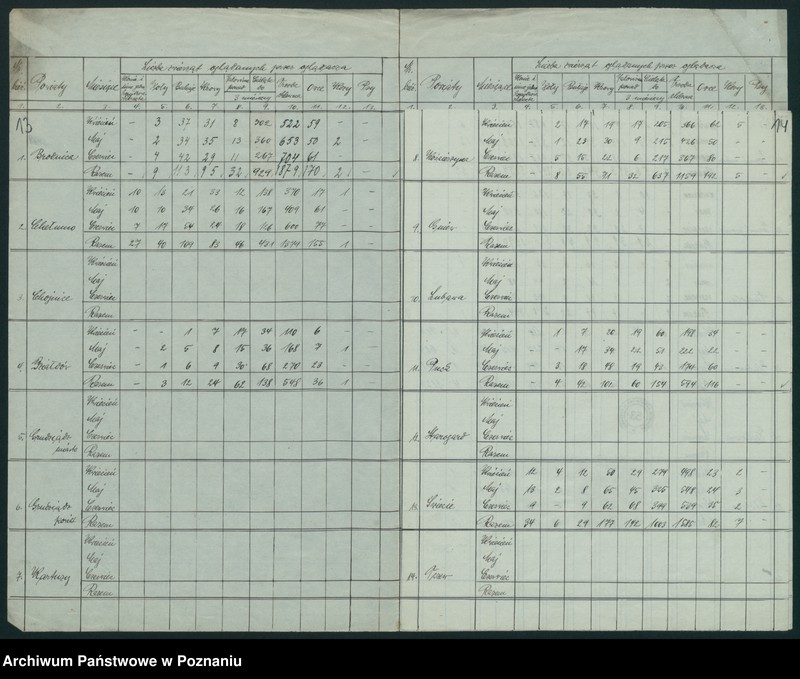 Liczba zwierząt oglądanych przez oglądacza
Powiaty Miesiące Woły Buhaje Krowy Owce Kozy Psy
1. 2. 3. 4. 5. 6. 7. 8. 9. 10. 11. 12.
13
Kwiecień – 3 37 31 8 302 522 59 – –
Maj – 2 34 35 13 360 653 50 2
1. Brodnica Czerwiec – 4 42 29 11 267 704 61 –
Razem – 9 113 95 32 929 1879 170 2
Kwiecień 10 13 21 33 12 138 570 17 1 –
Maj 10 10 34 26 16 167 409 61 – –
2. Chełmno Czerwiec 7 17 54 24 18 126 600 77 – –
Razem 27 40 109 83 46 431 1579 155 1 –
Kwiecień
Maj
3. Chojnice Czerwiec
Razem
Kwiecień – – 1 7 17 34 110 6 – –
Maj – 2 5 8 15 36 168 7 1 –
4. Czerwiec – 1 6 9 30 68 270 23 – –
Razem – 3 12 24 62 138 548 36 1 –
Kwiecień
Maj
5. Grudziądz miasto Czerwiec
Razem
Kwiecień
Maj
6. Grudziądz powiat Czerwiec
Razem
Kwiecień
Maj
7. Kartuzy Czerwiec
Razem
Liczba zwierząt oglądanych przez oglądacza
Powiaty Miesiące Woły Buhaje Krowy Owce Kozy Psy
14
Kwiecień – 2 17 19 17 205 366 62 5 –
Maj – 1 23 30 9 215 426 50 – –
8. Kościerzyna Czerwiec – 5 15 22 6 217 367 80 – –
Razem – 8 55 71 32 637 1159 192 5 –
Kwiecień
Maj
9. Gniew Czerwiec
Razem
Kwiecień
Maj
10. Lubawa Czerwiec
Razem
Kwiecień – 1 7 20 19 60 198 34 – –
Maj – – 17 34 22 51 222 22 – –
11. Puck Czerwiec – 3 18 48 19 43 174 60 – –
Razem – 4 42 102 60 154 594 116 – –
Kwiecień
Maj
12. Starogard Czerwiec
Razem
Kwiecień 12 4 12 50 29 274 448 23 2 –
Maj 13 2 8 65 45 325 548 24 3
13. Świecie Czerwiec 9 – 9 62 68 344 539 35 2
Razem 34 6 29 177 142 1003 1535 82 7 –
Kwiecień
Maj
14. Tczew Czerwiec
Razem
Archiwum Państwowe w Poznaniu